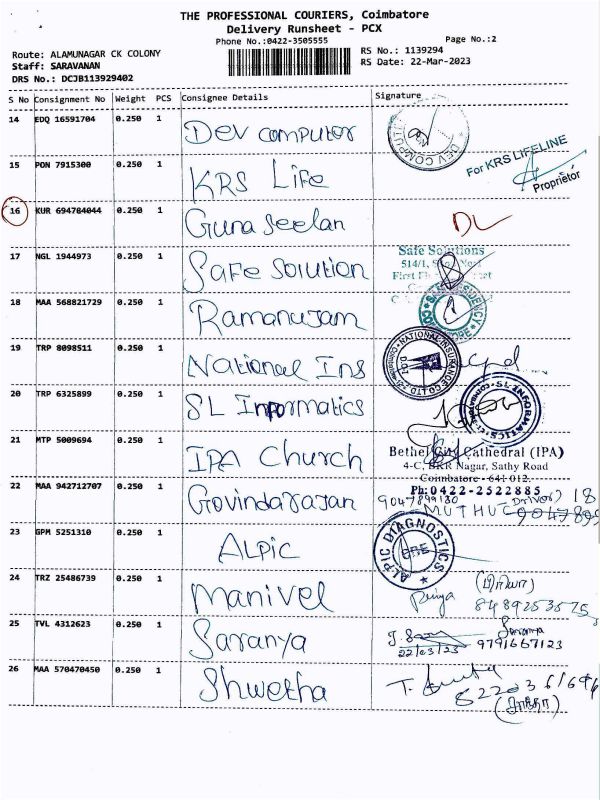 THE PROFESSIONAL COURIERS, Coimbatore
Delivery Runsheet - PCX
Phone No.:0422-3505555
Page No.:2
Route: ALAMUNAGAR CK COLONY
Staff: SARAVANAN
DRS No.: DCJB113929402
RS No.: 1139294
RS Date: 22-Mar-2023
S No Consignment No Weight PCS Consignee Details Signature
14 EDQ 16591704 0.250 1 Dev computor
DEV COMPUTOR
15 PON 7915300 0.250 1 KRS Life
For KRS LIFELINE
Proprietor
16 KUR 694784044 0.250 1 Gunaseelan DL
17 NGL 1944973 0.250 1 Safe Solution
Safe Solutions
514/1,
First
18 MAA 568821729 0.250 1 Ramanujam
19 TRP 8098511 0.250 1 National Ins
NATIONAL INSURANCE CO LTD
20 TRP 6325899 0.250 1 SL Informatics
SL INFORMATICS
21 MTP 5009694 0.250 1 IPA Church
Bethel City Cathedral (IPA)
4-C, BKR Nagar, Sathy Road
Coimbatore - 641 012.
Ph: 0422-2522885
22 MAA 942712707 0.250 1 Govindarajan
9047899180 Driver
MUTHU
23 GPM 5251310 0.250 1 ALPIC
ALPIC DIAGNOSTICS
CBE
24 TRZ 25486739 0.250 1 Manivel
Priya (பிரியா)
25 TVL 4312623 0.250 1 Saranya
Saranya
22/03/23 9791667123
26 MAA 570470450 0.250 1 Shwetha